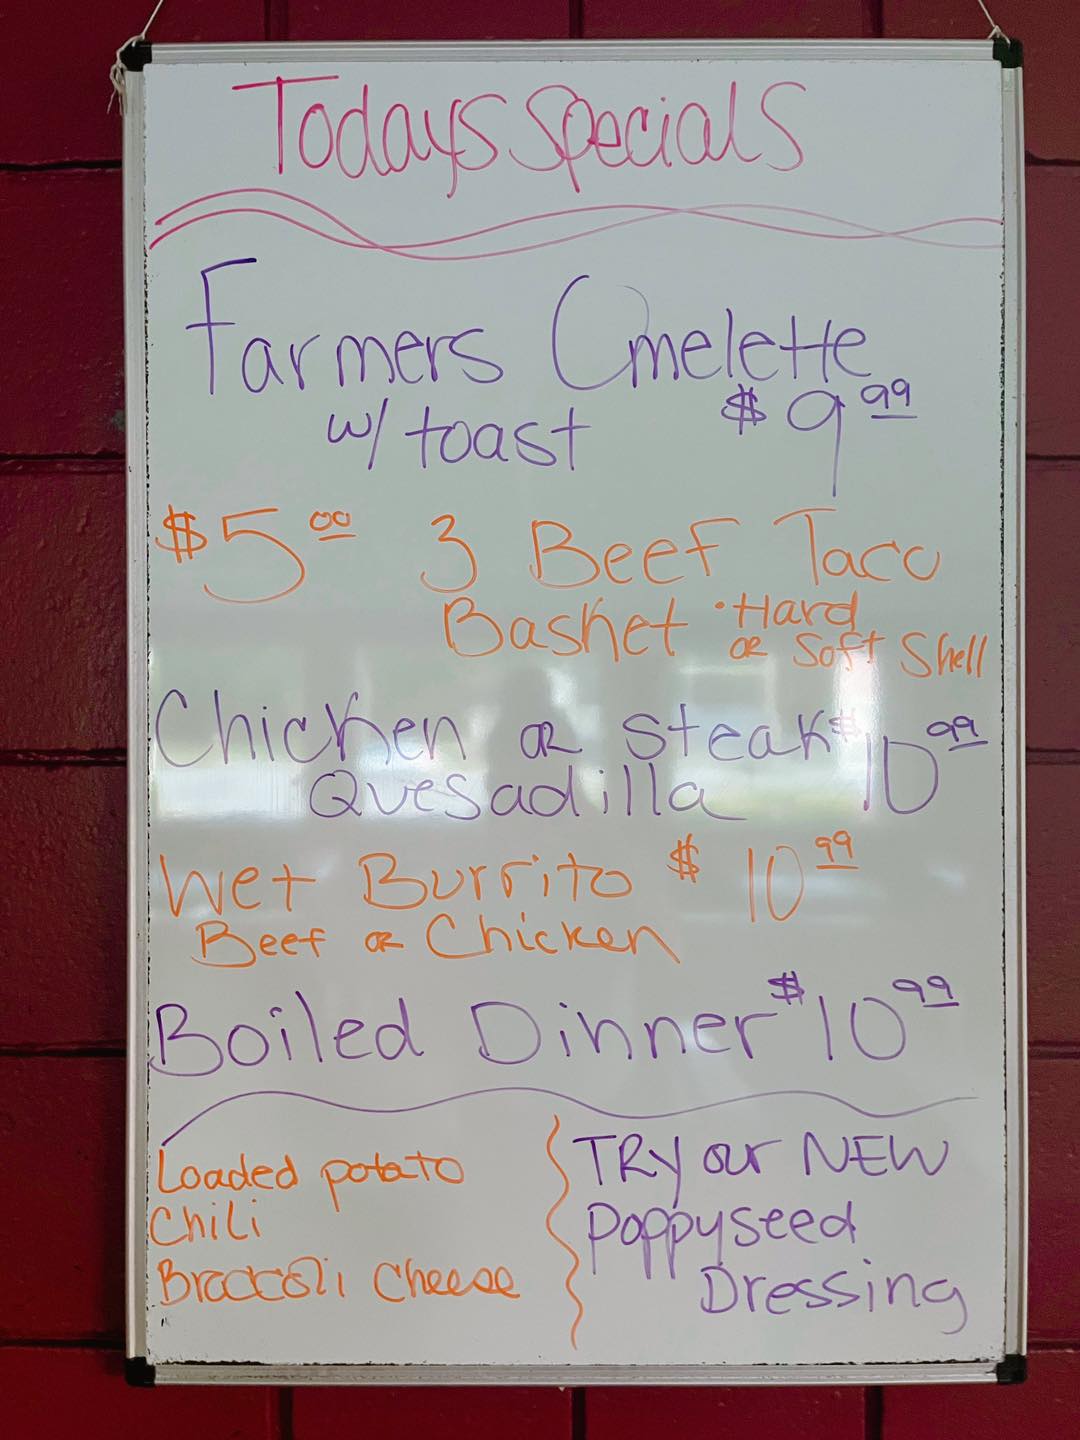 Todays Specials
Farmers Omelette
w/ toast $9.99
$5.00 3 Beef Taco
Basket • Hard
or Soft Shell
Chicken or Steak $10.99
Quesadilla
Wet Burrito $10.99
Beef or Chicken
Boiled Dinner $10.99
Loaded potato
Chili
Broccoli Cheese
TRY our NEW
Poppyseed
Dressing